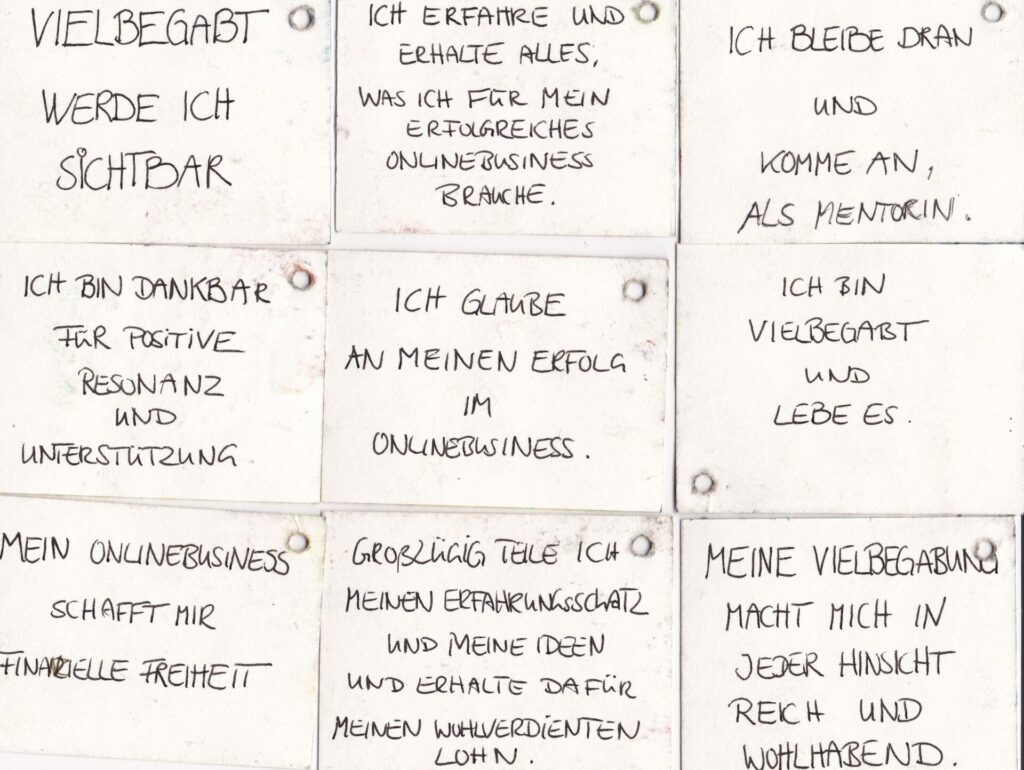 VIELBEGABT
WERDE ICH
SICHTBAR
ICH ERFAHRE UND
ERHALTE ALLES,
WAS ICH FÜR MEIN
ERFOLGREICHES
ONLINEBUSINESS
BRAUCHE.
ICH BLEIBE DRAN
UND
KOMME AN,
ALS MENTORIN.
ICH BIN DANKBAR
FÜR POSITIVE
RESONANZ
UND
UNTERSTÜTZUNG.
ICH GLAUBE
AN MEINEN ERFOLG
IM
ONLINEBUSINESS.
ICH BIN
VIELBEGABT
UND
LEBE ES.
MEIN ONLINEBUSINESS
SCHAFFT MIR
FINANZIELLE FREIHEIT
GROßZÜGIG TEILE ICH
MEINEN ERFAHRUNGSSCHATZ
UND MEINE IDEEN
UND ERHALTE DAFÜR
MEINEN WOHLVERDIENTEN
LOHN.
MEINE VIELBEGABUNG
MACHT MICH IN
JEDER HINSICHT
REICH UND
WOHLHABEND.